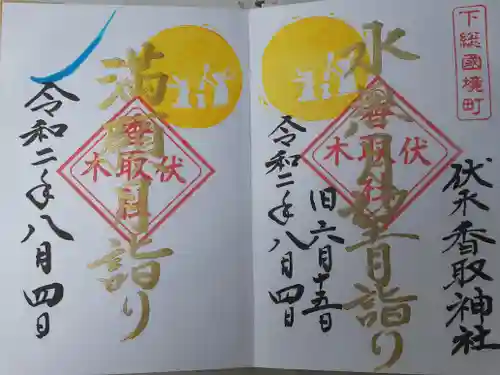 下総國境町
伏木香取神社
水無月望日詣り
旧六月十五日
令和二年八月四日
香取社
伏木
詣り
令和二年八月四日
伏木